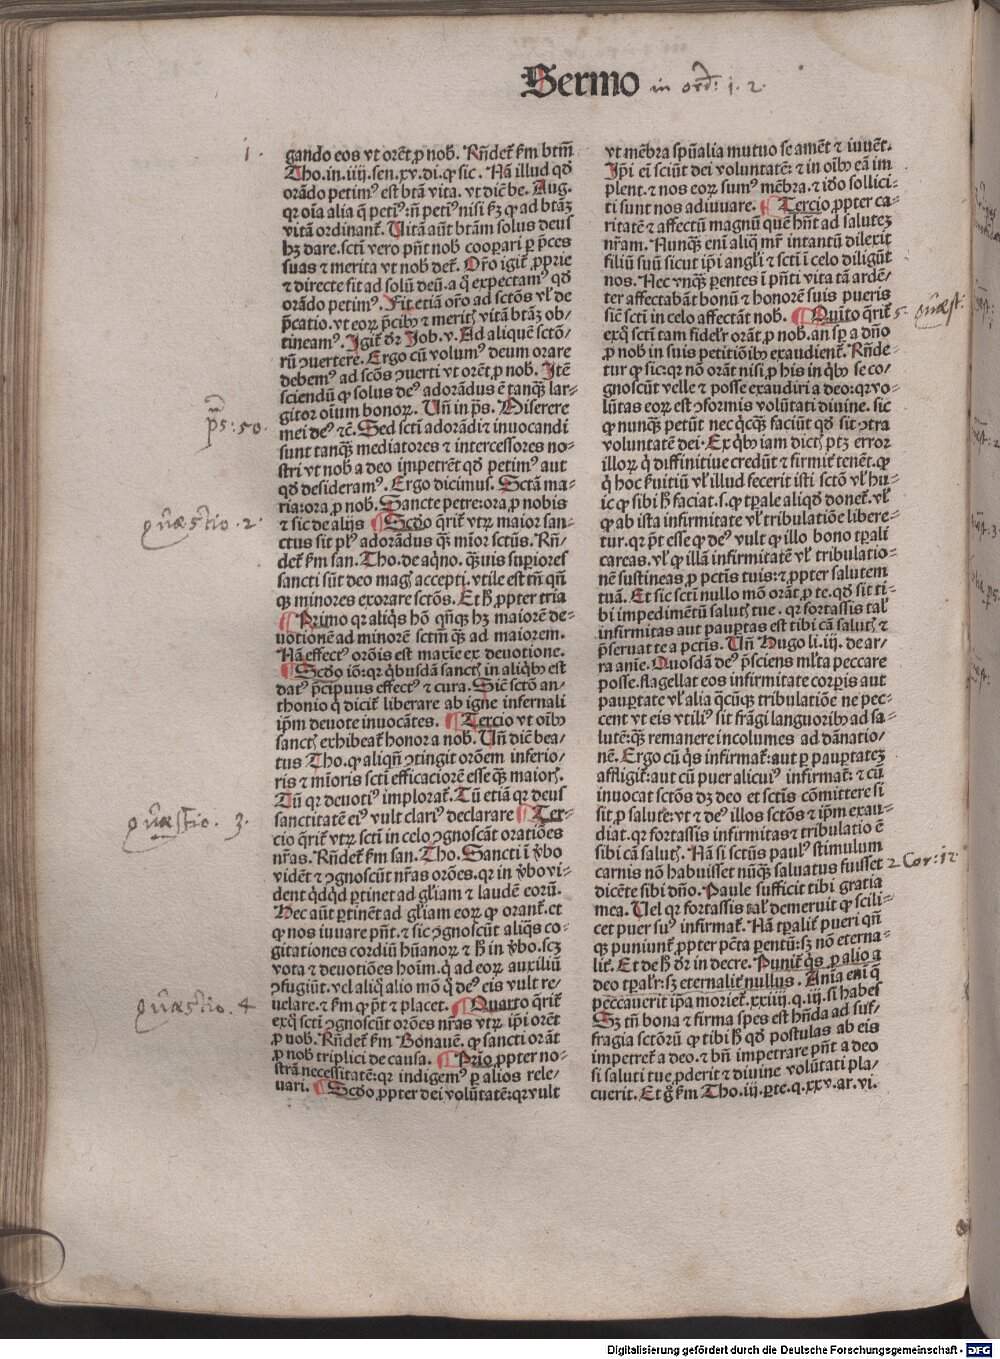 Sermo in ord: 1. 2.
1.
gando eos vt orēt ꝓ nob̄. Rñdet̄ ẜm btm̄
Tho. in. iiij. sen. xv. di. ꝙ sic. Nā illud qd̄
orādo petimꝰ est btā vita. vt diē be. Aug.
qꝛ oīa alia q̄ petiꝰ: nō petiꝰ nisi ẜꝫ ꝙ ad btāꝫ
vitā ordinant̄. Uitā aūt btām solus deus
hꝫ dare. scti vero pn̄t nob̄ cooꝑari ꝑ p̄ces
suas ⁊ merita vt nob̄ det̄. Or̄o igit̄ ꝓprie
⁊ directe fit ad solū deū. a q̊ expectamꝰ qd̄
orādo petimꝰ. Fit etiā or̄o ad sctōs vl̓ de
p̄catio. vt eoꝝ p̄cibꝰ ⁊ meritꝭ vitā btāꝫ ob⸗
tineamꝰ. Igit̄ dr̄ Job. v. Ad aliquē sctō⸗
rū ꝯuertere. Ergo cū volumꝰ deum orare
debemꝰ ad scōs ꝯuerti vt orēt ꝓ nob. Itē
sciendū ꝙ solus deꝰ adorādus ē tanq̄ꝫ lar⸗
gitor oīum bonoꝝ. Uñ in ps̄. Miserere
ps: 50.
mei deꝰ ⁊c̄. Sed scti adorādi ⁊ inuocandi
sunt tanq̄ꝫ mediatores ⁊ intercessores no⸗
stri vt nob̄ a deo impetrēt qd̄ petimꝰ aut
qd̄ desideramꝰ. Ergo dicimus. Sctā ma⸗
ria: ora ꝓ nob̄. Sancte petre: ora ꝓ nobis
quæstio. 2.
⁊ sic de alijs ¶ Scd̓o q̄rit̄ vtꝝ maior san⸗
ctus sit plꝰ adorādus q̄ꝫ mīor sctūs. Rñ⸗
det̄ ẜm san. Tho. de aq̄no. q̄ꝫuis suꝑiores
sancti sūt deo magꝭ accepti. vtile est tn̄ qn̄
q̄ꝫ minores exorare sctōs. Et h̄ ꝓpter tria
¶ Primo qꝛ aliq̄s hō qn̄q̄ꝫ hꝫ maiorē de⸗
uotionē ad minorē sctm̄ q̄ꝫ ad maiorem.
Nā effectꝰ orōis est maxīe ex deuotione.
¶ Scd̓o iō: qꝛ q̄busdā sanctꝭ in aliq̄bꝰ est
datꝰ p̄cipuus effectꝰ ⁊ cura. Sic̄ sctō an⸗
thonio q̄ dicit̄ liberare ab igne infernali
ip̄m deuote inuocātes. ¶ Tercio vt oībꝰ
sanctꝭ exhibeat̄ honor a nob̄. Uñ diē bea⸗
tus Tho. ꝙ aliqn̄ ꝯtingit orōem inferio⸗
ris ⁊ mīoris scti efficaciorē esse q̄ꝫ maiorꝭ.
Tū qꝛ deuotiꝰ implorat̄. Tū etiā qꝛ deus
sanctitatē eiꝰ vult clariꝰ declarare ¶ Ter⸗
quæstio. 3.
cio q̄rit̄ vtꝝ scti in celo ꝯgnoscāt oratiōes
nr̄as. Rñdet̄ ẜm san. Tho. Sancti ī ꝟbo
vidēt ⁊ ꝯgnoscūt nr̄as orōes. qꝛ in ꝟbo vi⸗
dent q̄dq̄d ꝑtinet ad gl̓iam ⁊ laudē eorū.
Hec aūt ꝑtinēt ad gl̓iam eoꝝ ꝙ orant̄. et
ꝙ nos iuuare pn̄t. ⁊ sic ꝯgnoscūt aliq̄s co⸗
gitationes cordiū hūanoꝝ ⁊ h̄ in ꝟbo. scꝫ
vota ⁊ deuotiōes hoīm. q̄ ad eoꝝ auxiliū
ꝯfugiūt. vel aliq̄ alio mō q̄ deꝰ eis vult re⸗
uelare. ⁊ ẜm ꝙ pōt ⁊ placet. ¶ Quarto q̄rit̄
quæstio. 4
exq̊ scti ꝯgnoscūt orōes nr̄as vtꝝ ip̄i orēt
ꝓ nob̄. Rñdet̄ ẜm Bonauē. ꝙ sancti orāt
ꝓ nob̄ triplici de causa. ¶ Prīo ꝓpter no⸗
strā necessitatē: qꝛ indigemꝰ ꝑ alios rele⸗
uari. ¶ Scd̓o ꝓpter dei volūtatē: qꝛ vult
vt mēbra spūalia mutuo se amēt ⁊ iuuēt.
Ip̄i eī sciūt dei voluntatē: ⁊ in oībꝰ eā im
plent. ⁊ nos eoꝝ sumꝰ mēbra. ⁊ iđo sollici⸗
ti sunt nos adiuuare. ¶ Tercio ꝓpter ca⸗
ritatē ⁊ affectū magnū quē hn̄t ad salutē
nr̄am. Nunq̄ꝫ enī aliq̄ mr̄ intantū dilexit
filiū suū sicut ip̄i angl̓i ⁊ scti ī celo diligūt
nos. Nec vnq̄ꝫ ꝑentes ī pn̄ti vita tā ardē⸗
ter affectabāt bonū ⁊ honorē suis pueris
sic̄ scti in celo affectāt nob̄. ¶ Quīto q̄rit̄
5. quæst:
exq̊ scti tam fidel̓r orāt ꝓ nob̄. an sp̄ a dn̄o
ꝓ nob̄ in suis petitiōibꝰ exaudient̄. Rñde⸗
tur ꝙ sic: qꝛ nō orāt nisi ꝓ his in q̄bꝰ se co⸗
gnoscūt velle ⁊ posse exaudiri a deo: qꝛ vo⸗
lūtas eoꝝ est ꝯformis volūtati diuine. sic
ꝙ nunq̄ꝫ petūt nec q̄cq̄ꝫ faciūt qd̄ sit ꝯtra
voluntatē dei. Ex q̄bꝰ iam dictꝭ ptꝫ error
illoꝝ q̄ diffinitiue credūt ⁊ firmit̄ tenēt. ꝙ
q̄ hoc ẜuitiū vl̓ illud fecerit isti sctō vl̓ hu⸗
ic ꝙ sibi h̄ faciat. s. ꝙ tꝑale aliqd̄ donet̄. vl̓
ꝙ ab ista infirmitate vl̓ tribulatiōe libere⸗
tur. qꝛ pōt esse ꝙ deꝰ vult ꝙ illo bono tꝑali
careas. vl̓ ꝙ illā infirmitatē vl̓ tribulatio⸗
nē sustineas ꝓ pctīs tuis: ⁊ ꝓpter salutem
tuā. Et sic scti nullo mō orāt ꝓ te. qd̄ sit ti⸗
bi impedimētū salutꝭ tue. qꝛ fortassis tal̓
infirmitas aut pauꝑtas est tibi cā salutꝭ ⁊
p̄seruat te a pctīs. Uñ Hugo li. iij. de ar⸗
ra anīe. Quosdā deꝰ p̄sciens ml̓ta peccare
posse. flagellat eos infirmitate corꝑis aut
pauꝑtate vl̓ alia q̄cūqꝫ tribulatiōe ne pec⸗
cent vt eis vtiliꝰ sit frāgi languoribꝰ ad sa⸗
lutē: q̄ꝫ remanere incolumes ad dānatio⸗
nē. Ergo cū q̄s infirmat̄: aut ꝑ pauꝑtateꝫ
affligit̄: aut cū puer alicuiꝰ infirmat̄: ⁊ cū
inuocat sctōs dꝫ deo et sctīs cōmittere si
sit ꝓ salute: vt ⁊ deꝰ illos sctōs ⁊ ip̄m exau⸗
diat. qꝛ fortassis infirmitas ⁊ tribulatio ē
sibi cā salutꝭ. Nā si sctūs paulꝰ stimulum
carnis nō habuisset nūq̄ꝫ saluatus fuisset
2 Cor: 12
dicēte sibi dn̄o. Paule sufficit tibi gratia
mea. Uel qꝛ fortassis tal̓ demeruit ꝙ scili⸗
cet puer suꝰ infirmat̄. Nā tꝑalit̄ pueri qn̄
q̄ꝫ puniunt̄ ꝓpter pctā ꝑentū: sꝫ nō eterna⸗
lit̄. Et de h̄ dr̄ in decre. Punit̄ q̄s ꝑ alio a
deo tꝑal̓r: sꝫ eternalit̄ nullus. Anīa enī q̄
peccauerit ip̄a moriet̄. xxiiij. q. iij. si habes
Sꝫ tn̄ bona ⁊ firma spes est hn̄da ad suf⸗
fragia sctōrū ꝙ tibi h̄ qd̄ postulas ab eis
impetrēt a deo. ⁊ bn̄ impetrare pn̄t a deo
si saluti tue ꝓderit ⁊ diuine volūtati pla⸗
cuerit. Et g̊ ẜm Tho. iij. ꝑte. q. xxv. ar. vi.
Digitalisierung gefördert durch die Deutsche Forschungsgemeinschaft - DFG